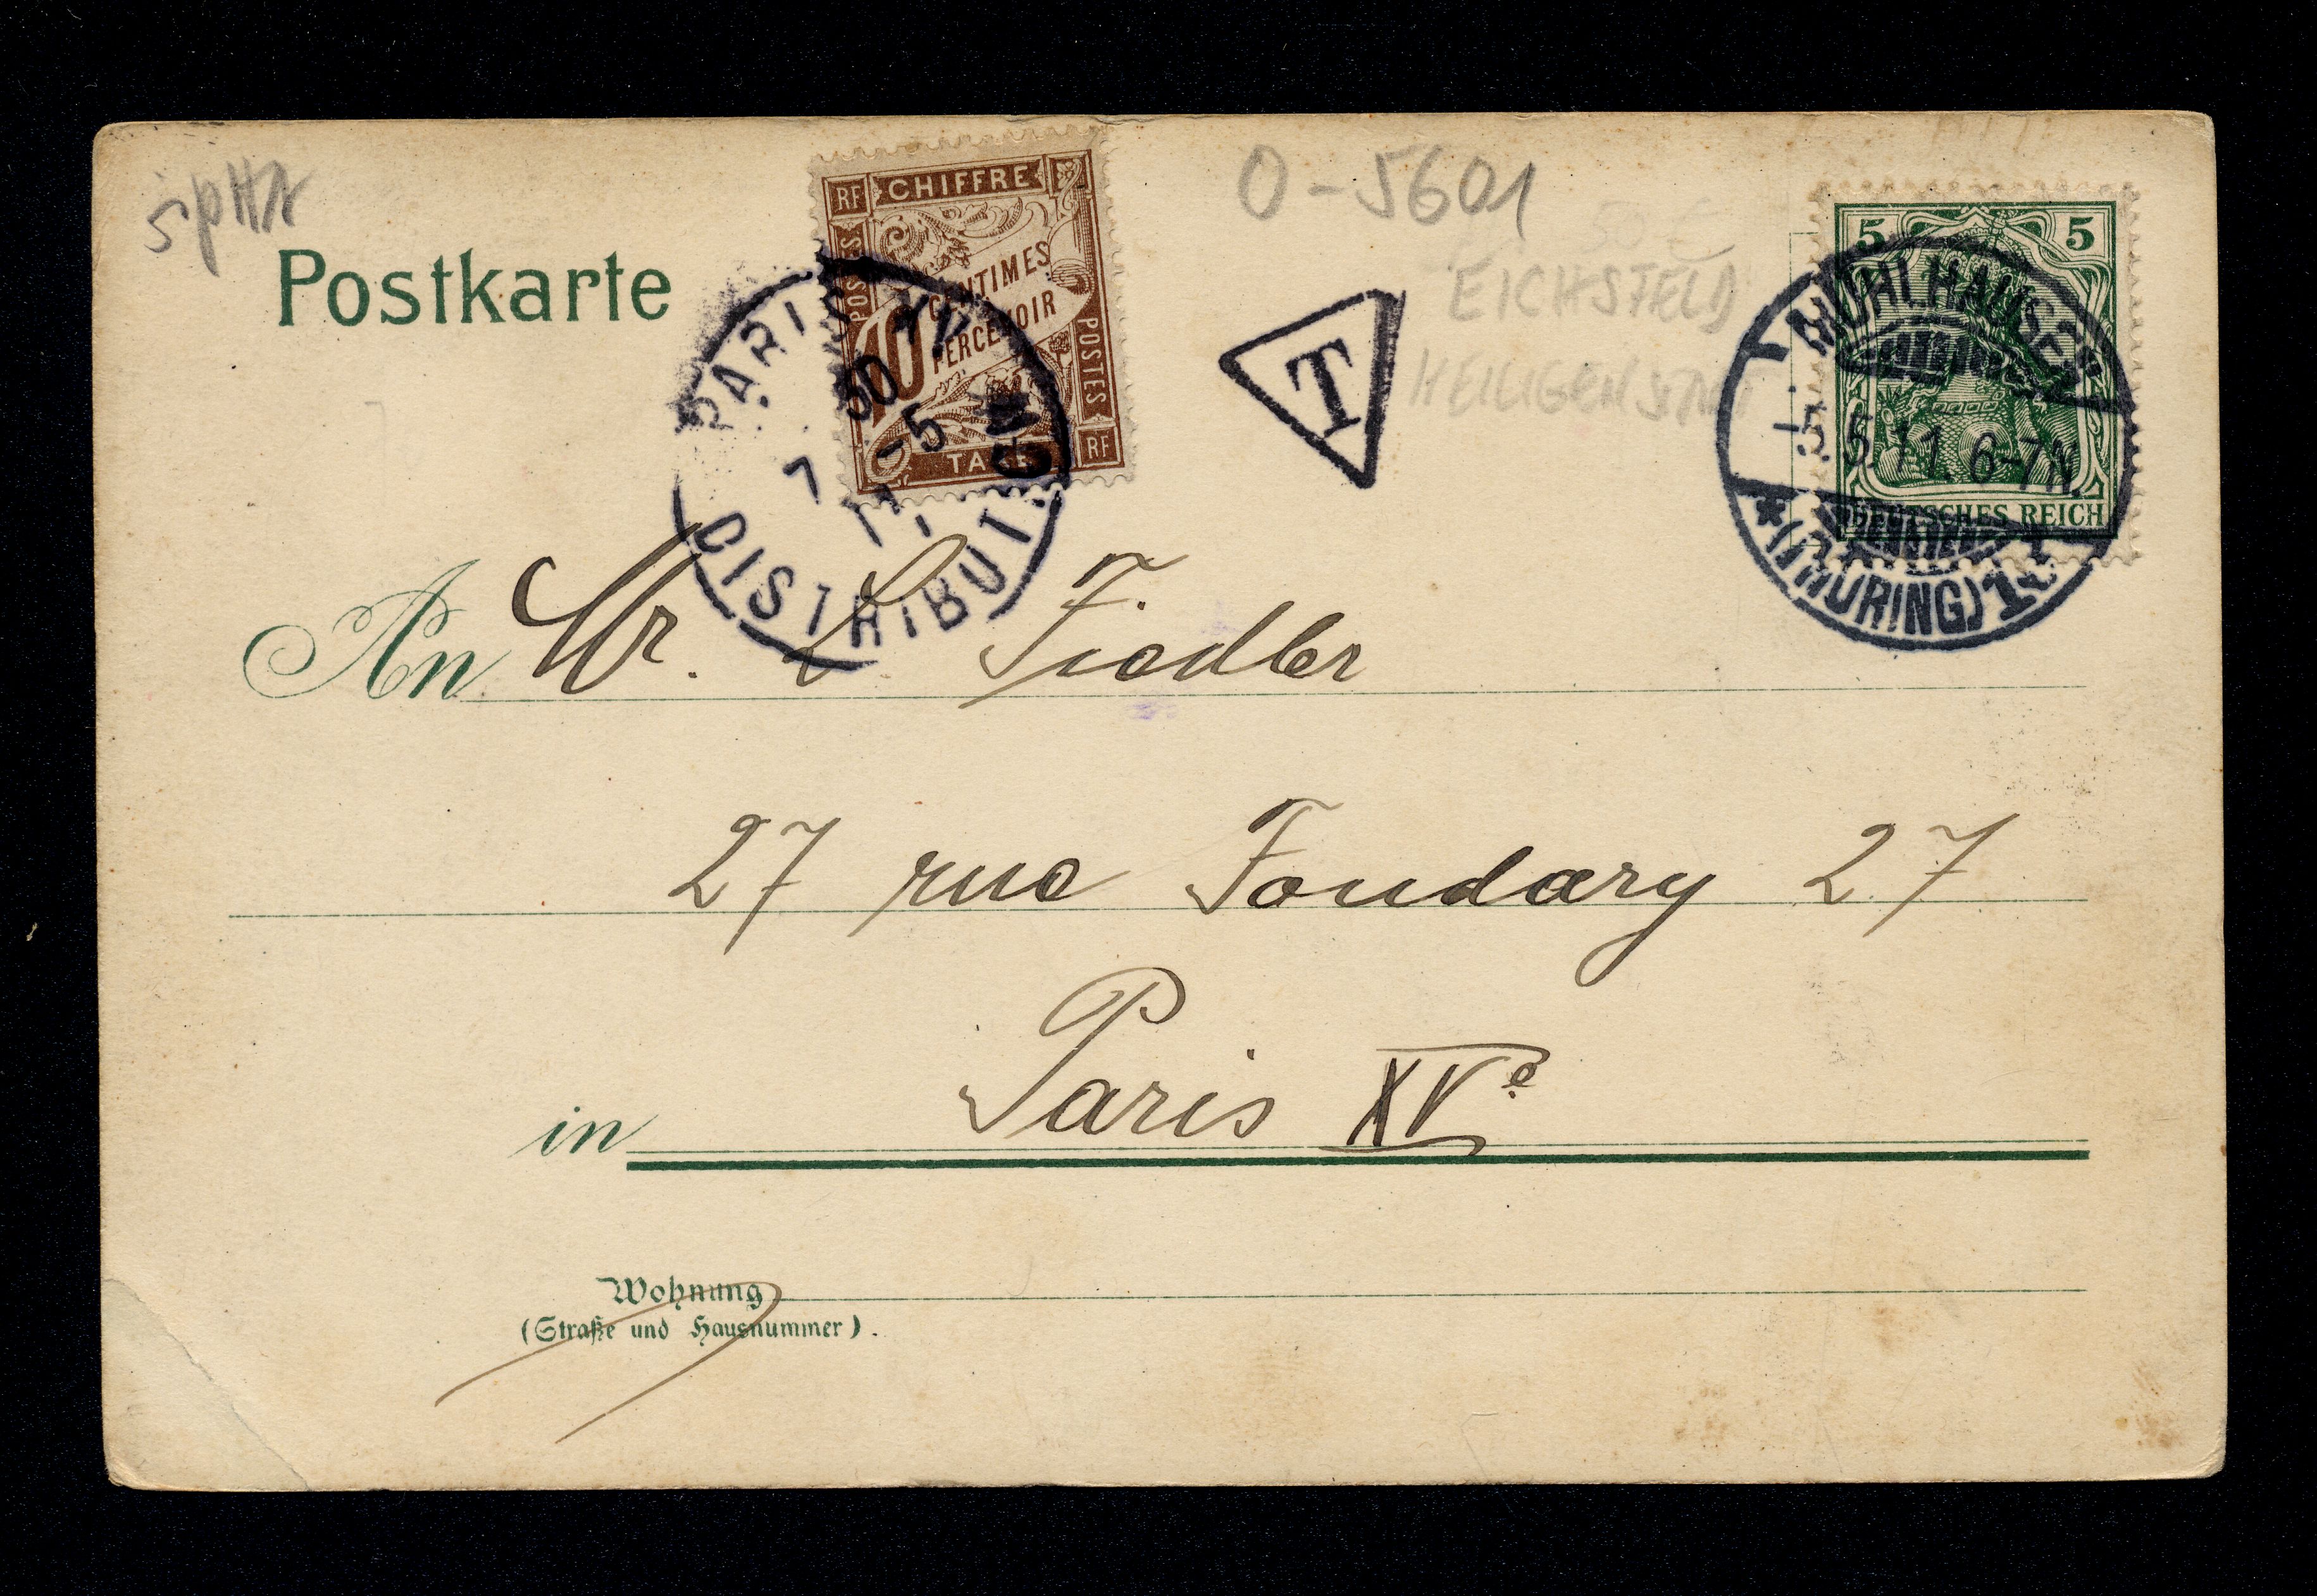 O-5601
EICHSFELD
HEILIGENSTADT
Postkarte
RF CHIFFRE
POSTES
10 CENTIMES
PERCEVOIR
POSTES
TAXE RF
PARIS XV
30
7 -5
11
DISTRIBUT.
T
5 5
DEUTSCHES REICH
MÜHLHAUSEN
5.5.11.6-7N.
* (THÜRING)
An Mr. L Fiedler
27 rue Fondary 27
in Paris XVe
Wohnung
(Straße und Hausnummer).